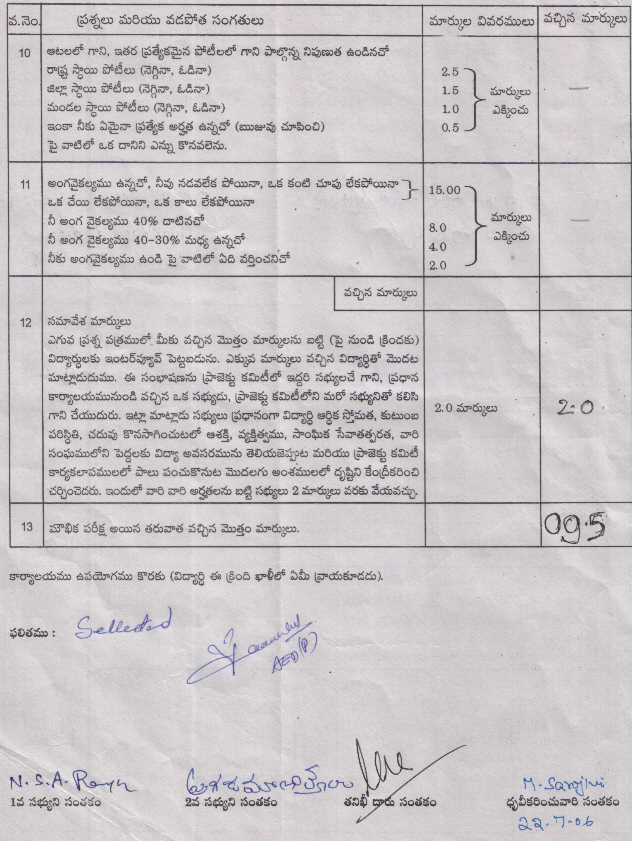 వ.నెం. ప్రశ్నలు మరియు వడపోత సంగతులు మార్కుల వివరములు వచ్చిన మార్కులు
10 ఆటలలో గాని, ఇతర ప్రత్యేకమైన పోటీలలో గాని పాల్గొన్న నిపుణత ఉండినచో
రాష్ట్ర స్థాయి పోటీలు (నెగ్గినా, ఓడినా) 2.5
జిల్లా స్థాయి పోటీలు (నెగ్గినా, ఓడినా) 1.5 మార్కులు —
మండల స్థాయి పోటీలు (నెగ్గినా, ఓడినా) 1.0 ఎక్కించు
ఇంకా నీకు ఏమైనా ప్రత్యేక అర్హత ఉన్నచో (ఋజువు చూపించి) 0.5
పై వాటిలో ఒక దానిని ఎన్ను కొనవలెను.
11 అంగవైకల్యము ఉన్నచో, నీవు నడవలేక పోయినా, ఒక కంటి చూపు లేకపోయినా 15.00
ఒక చేయి లేకపోయినా, ఒక కాలు లేకపోయినా
నీ అంగ వైకల్యము 40% దాటినచో 8.0 మార్కులు —
నీ అంగ వైకల్యము 40-30% మధ్య ఉన్నచో 4.0 ఎక్కించు
నీకు అంగవైకల్యము ఉండి పై వాటిలో ఏది వర్తించనిచో 2.0
వచ్చిన మార్కులు
12 సమావేశ మార్కులు
ఎగువ ప్రశ్న పత్రములో మీకు వచ్చిన మొత్తం మార్కులను బట్టి (పై నుండి క్రిందకు)
విద్యార్థులకు ఇంటర్‌వ్యూవ్ పెట్టబడును. ఎక్కువ మార్కులు వచ్చిన విద్యార్థితో మొదట
మాట్లాడుదుము. ఈ సంభాషణను ప్రాజెక్టు కమిటీలో ఇద్దరి సభ్యులచే గాని, ప్రధాన
కార్యాలయమునుండి వచ్చిన ఒక సభ్యుడు, ప్రాజెక్టు కమిటీలోని మరో సభ్యునితో కలిసి
గాని చేయుదురు. ఇట్లా మాట్లాడు సభ్యులు ప్రధానంగా విద్యార్థి ఆర్థిక స్తోమత, కుటుంబ 2.0 మార్కులు 2.0
పరిస్థితి, చదువు కొనసాగించుటలో ఆశక్తి, వ్యక్తిత్వము, సాంఘిక సేవాతత్పరత, వారి
సంఘములోని పెద్దలకు విద్యా అవసరమును తెలియజెప్పుట మరియు ప్రాజెక్టు కమిటీ
కార్యకలాపములలో పాలు పంచుకొనుట మొదలగు అంశములలో దృష్టిని కేంద్రీకరించి
చర్చించెదరు. ఇందులో వారి వారి అర్హతలను బట్టి సభ్యులు 2 మార్కులు వరకు వేయవచ్చు.
13 మౌఖిక పరీక్ష అయిన తరువాత వచ్చిన మొత్తం మార్కులు. 09.5
కార్యాలయము ఉపయోగము కొరకు (విద్యార్థి ఈ క్రింది ఖాళీలో ఏమీ వ్రాయకూడదు).
ఫలితము : Sellected
AEO(P)
N.S.A. Rayu M. Sanjivi
1వ సభ్యుని సంతకం 2వ సభ్యుని సంతకం తనిఖీ దారు సంతకం ధృవీకరించువారి సంతకం
22-7-06